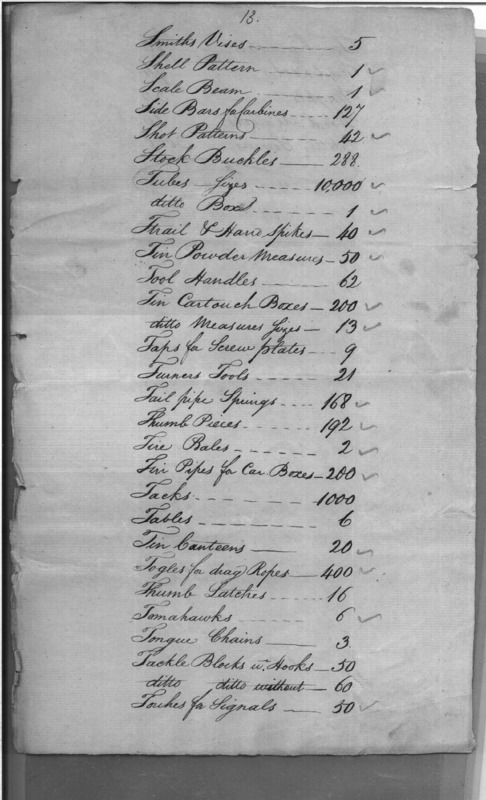 13.
Smiths Vises 5
Shell Pattern 1
Scale Beam 1
Side Bars for Carbines 127
Shot Patterns 42
Stock Buckles 288
Tubes Sizes 10,000
ditto Box 1
Trail & Hand Spikes 40
Tin Powder Measures 50
Tool Handles 62
Tin Cartouch Boxes 200
ditto Measures Sizes 13
Taps for Screw plates 9
Turners Tools 21
Tail pipe Springs 168
Thumb Pieces 192
Tire Bales 2
Tin Pipes for Car Boxes 200
Tacks 1000
Tables 6
Tin Canteens 20
Togles for drag Ropes 400
Thumb Latches 16
Tomahawks 6
Tongue Chains 3
Tackle Blocks w. Hooks 50
ditto ditto without 60
Torches for Signals 50